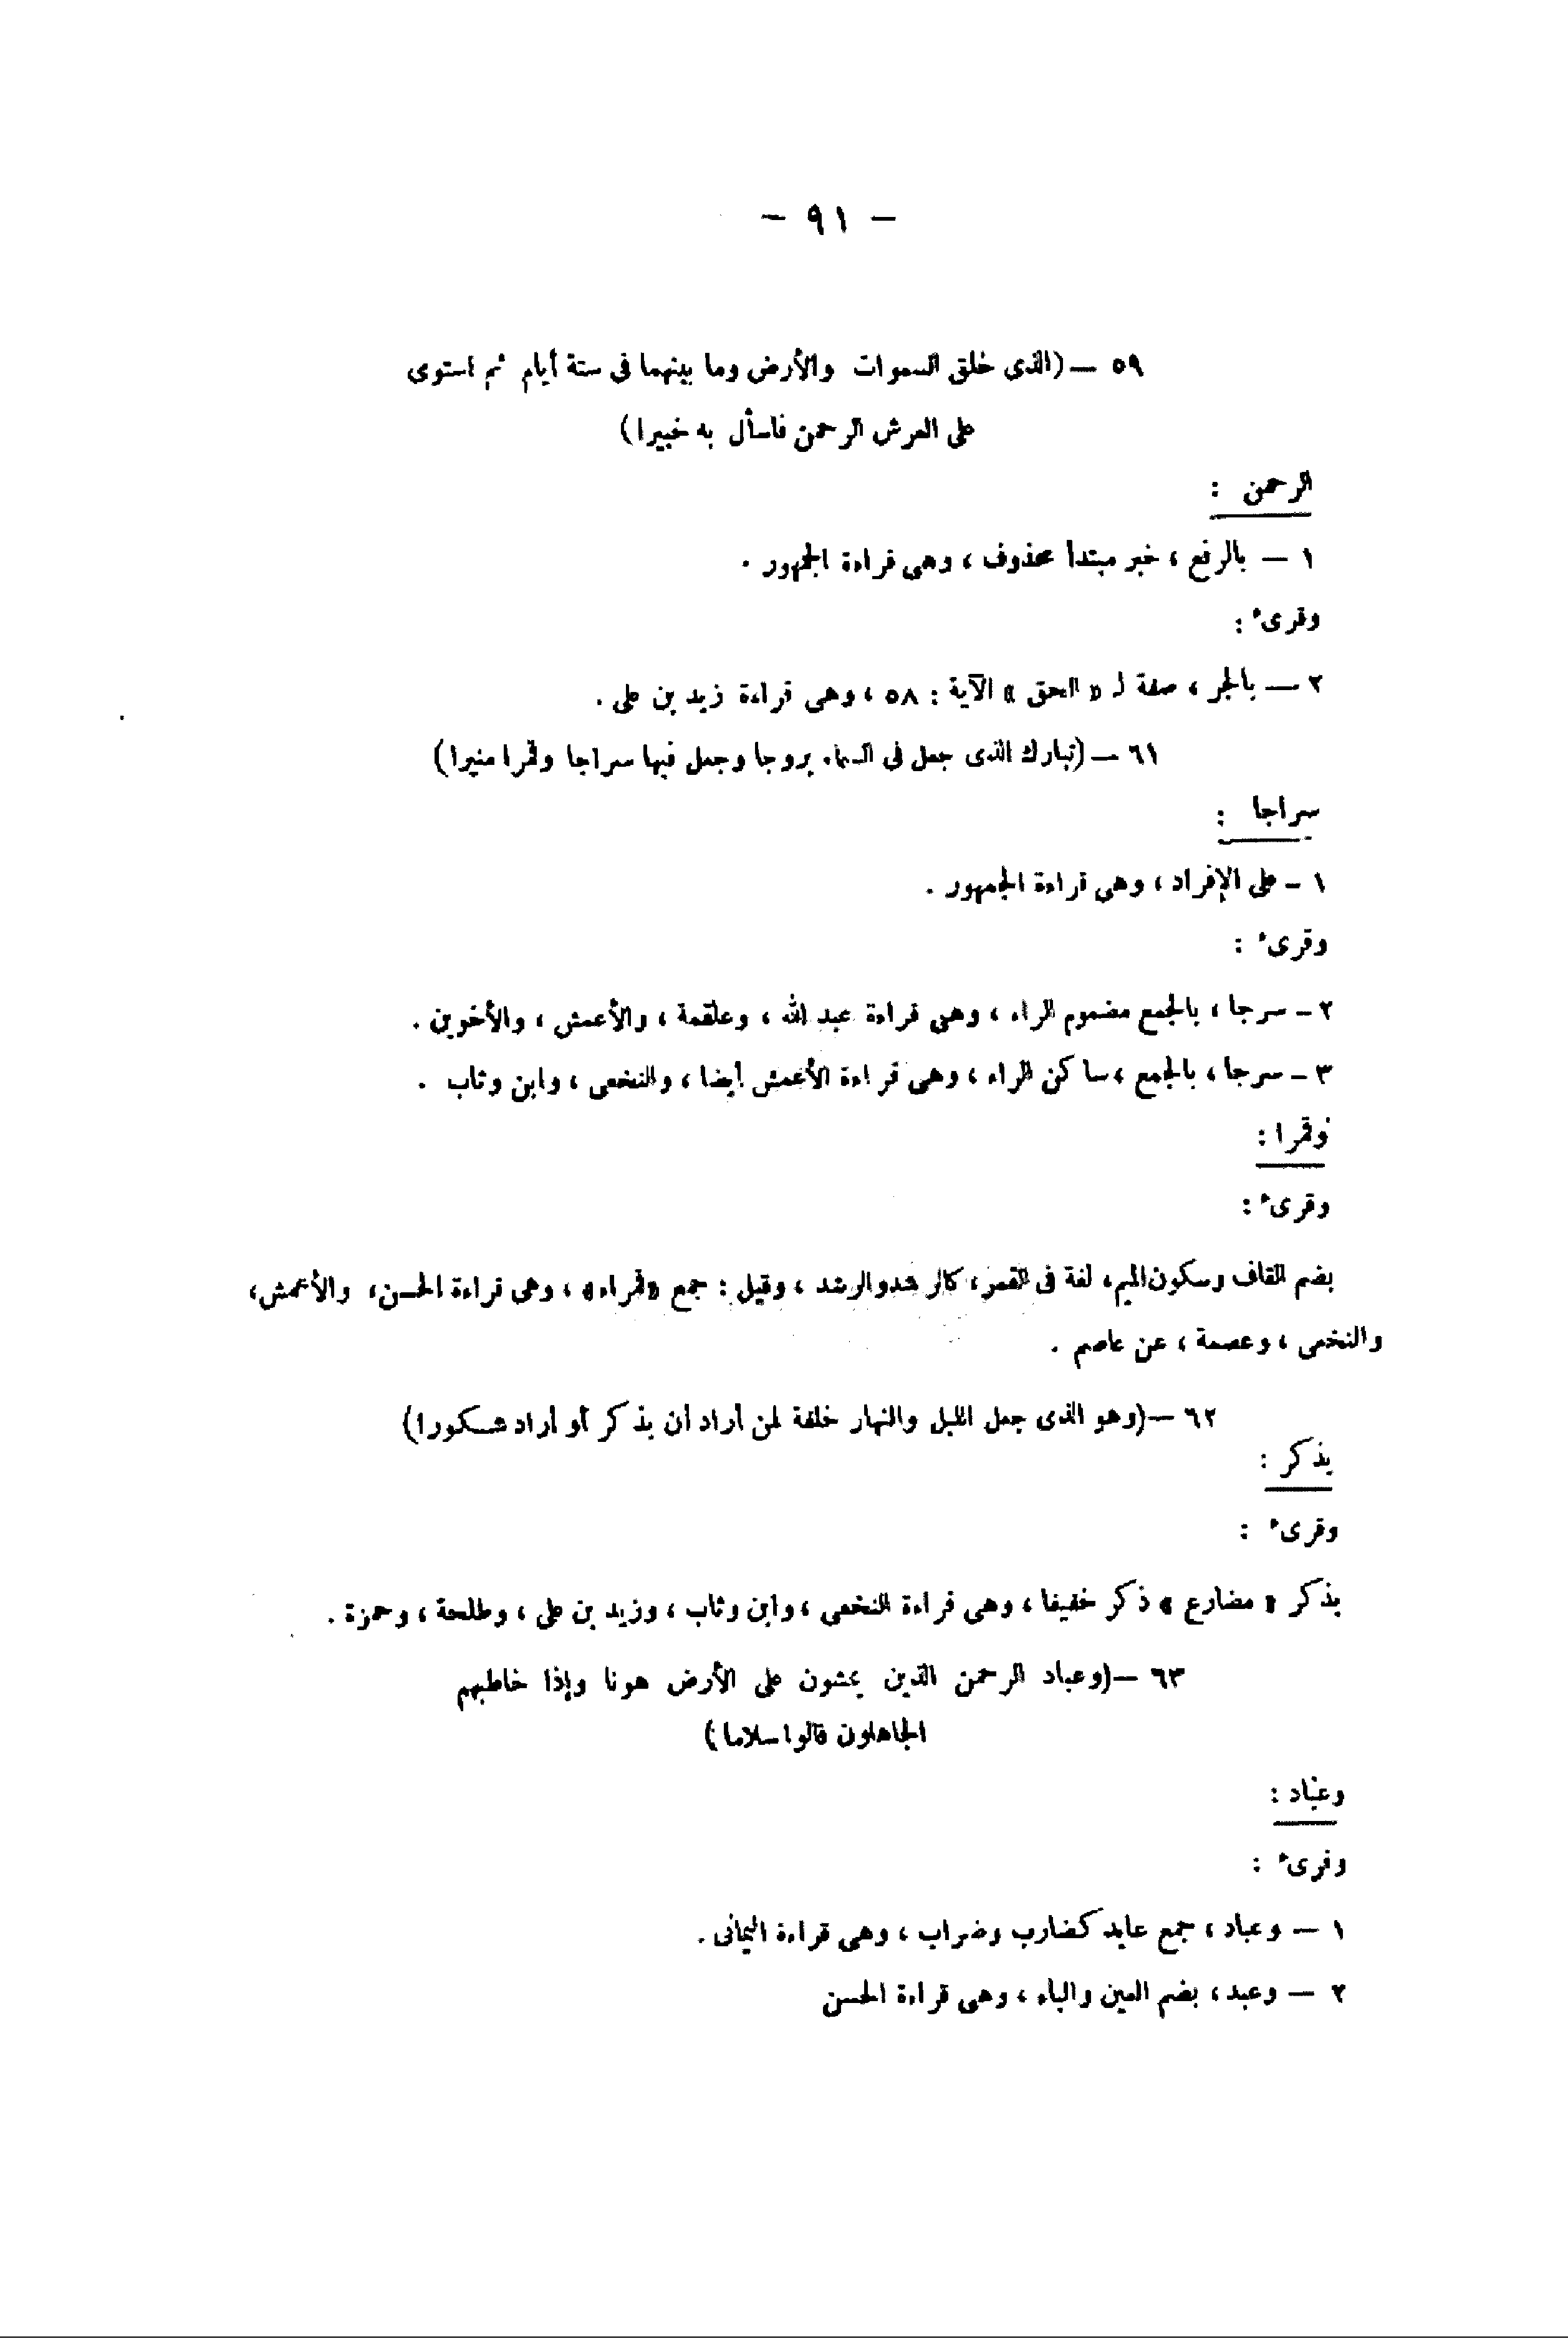 — ٩١ —
٥٩ — (الذى خلق السموات والأرض وما بينهما فى ستة أيام ثم استوى
على العرش الرحمن فاسأل به خبيرا)
الرحمن :
١ — بالرفع ، خبر مبتدأ محذوف ، وهى قراءة الجمهور .
وقرىء :
٢ — بالجر ، صفة لـ « الحق » الآية : ٥٨ ، وهى قراءة زيد بن على .
٦١ — (تبارك الذى جعل فى السماء بروجا وجعل فيها سراجا وقمرا منيرا)
سراجا :
١ - على الإفراد ، وهى قراءة الجمهور .
وقرىء :
٢ - سرجا ، بالجمع مضموم الراء ، وهى قراءة عبد الله ، وعلقمة ، والأعمش ، والأخوين .
٣ - سرجا ، بالجمع ، ساكن الراء ، وهى قراءة الأعمش أيضا ، والنخعى ، وابن وثاب .
وقمرا :
وقرىء :
بضم القاف وسكون الميم ، لغة فى القمر ، كالرشد والرشد ، وقيل : جمع «قمراء» ، وهى قراءة الحسن ، والأعمش ،
والنخعى ، وعصمة ، عن عاصم .
٦٢ — (وهو الذى جعل الليل والنهار خلفة لمن أراد أن يذكر أو أراد شكورا)
يذكر :
وقرىء :
يذكر « مضارع » ذكر خفيفا ، وهى قراءة النخعى ، وابن وثاب ، وزيد بن على ، وطلحة ، وحمزة .
٦٣ — (وعباد الرحمن الذين يمشون على الأرض هونا وإذا خاطبهم
الجاهلون قالوا سلاما)
وعباد :
وقرىء :
١ — وعباد ، جمع عابد كضارب وضراب ، وهى قراءة اليمانى .
٢ — وعبد ، بضم العين والباء ، وهى قراءة الحسن